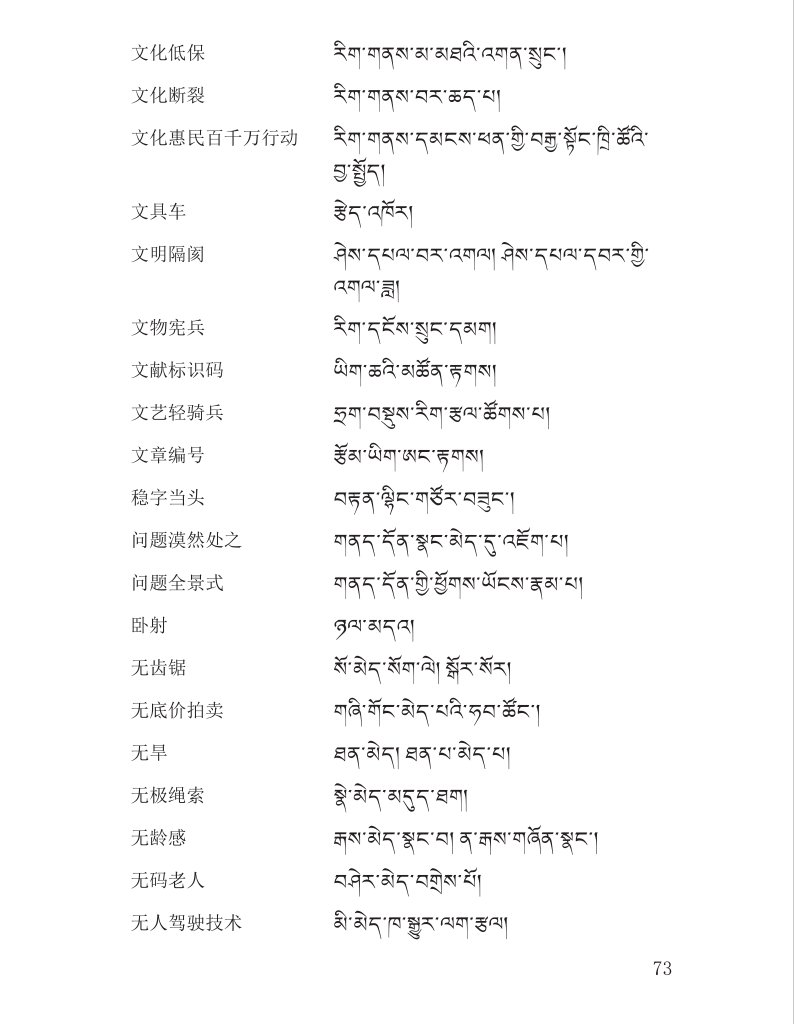 文化低保 རིག་གནས་མ་མཐའི་འགན་སྲུང་།
文化断裂 རིག་གནས་བར་ཆད་པ།
文化惠民百千万行动 རིག་གནས་དམངས་ཕན་གྱི་བརྒྱ་སྟོང་ཁྲི་ཚོའི་
བྱ་སྤྱོད།
文具车 རྩེད་འཁོར།
文明隔阂 ཤེས་དཔལ་བར་འགལ། ཤེས་དཔལ་དབར་གྱི་
འགལ་ཟླ།
文物宪兵 རིག་དངོས་སྲུང་དམག
文献标识码 ཡིག་ཆའི་མཚོན་རྟགས།
文艺轻骑兵 ཧྲག་བསྡུས་རིག་རྩལ་ཚོགས་པ།
文章编号 རྩོམ་ཡིག་ཨང་རྟགས།
稳字当头 བརྟན་ལྷིང་གཙོར་བཟུང་།
问题漠然处之 གནད་དོན་སྣང་མེད་དུ་འཇོག་པ།
问题全景式 གནད་དོན་གྱི་ཕྱོགས་ཡོངས་རྣམ་པ།
卧射 ཉལ་མདའ།
无齿锯 སོ་མེད་སོག་ལེ། སྒོར་སོར།
无底价拍卖 གཞི་གོང་མེད་པའི་ཧབ་ཚོང་།
无旱 ཐན་མེད། ཐན་པ་མེད་པ།
无极绳索 སྣེ་མེད་མདུད་ཐག
无龄感 རྒས་མེད་སྣང་བ། ན་རྒས་གཞོན་སྣང་།
无码老人 བཤེར་མེད་བགྲེས་པོ།
无人驾驶技术 མི་མེད་ཁ་སྒྱུར་ལག་རྩལ།
73